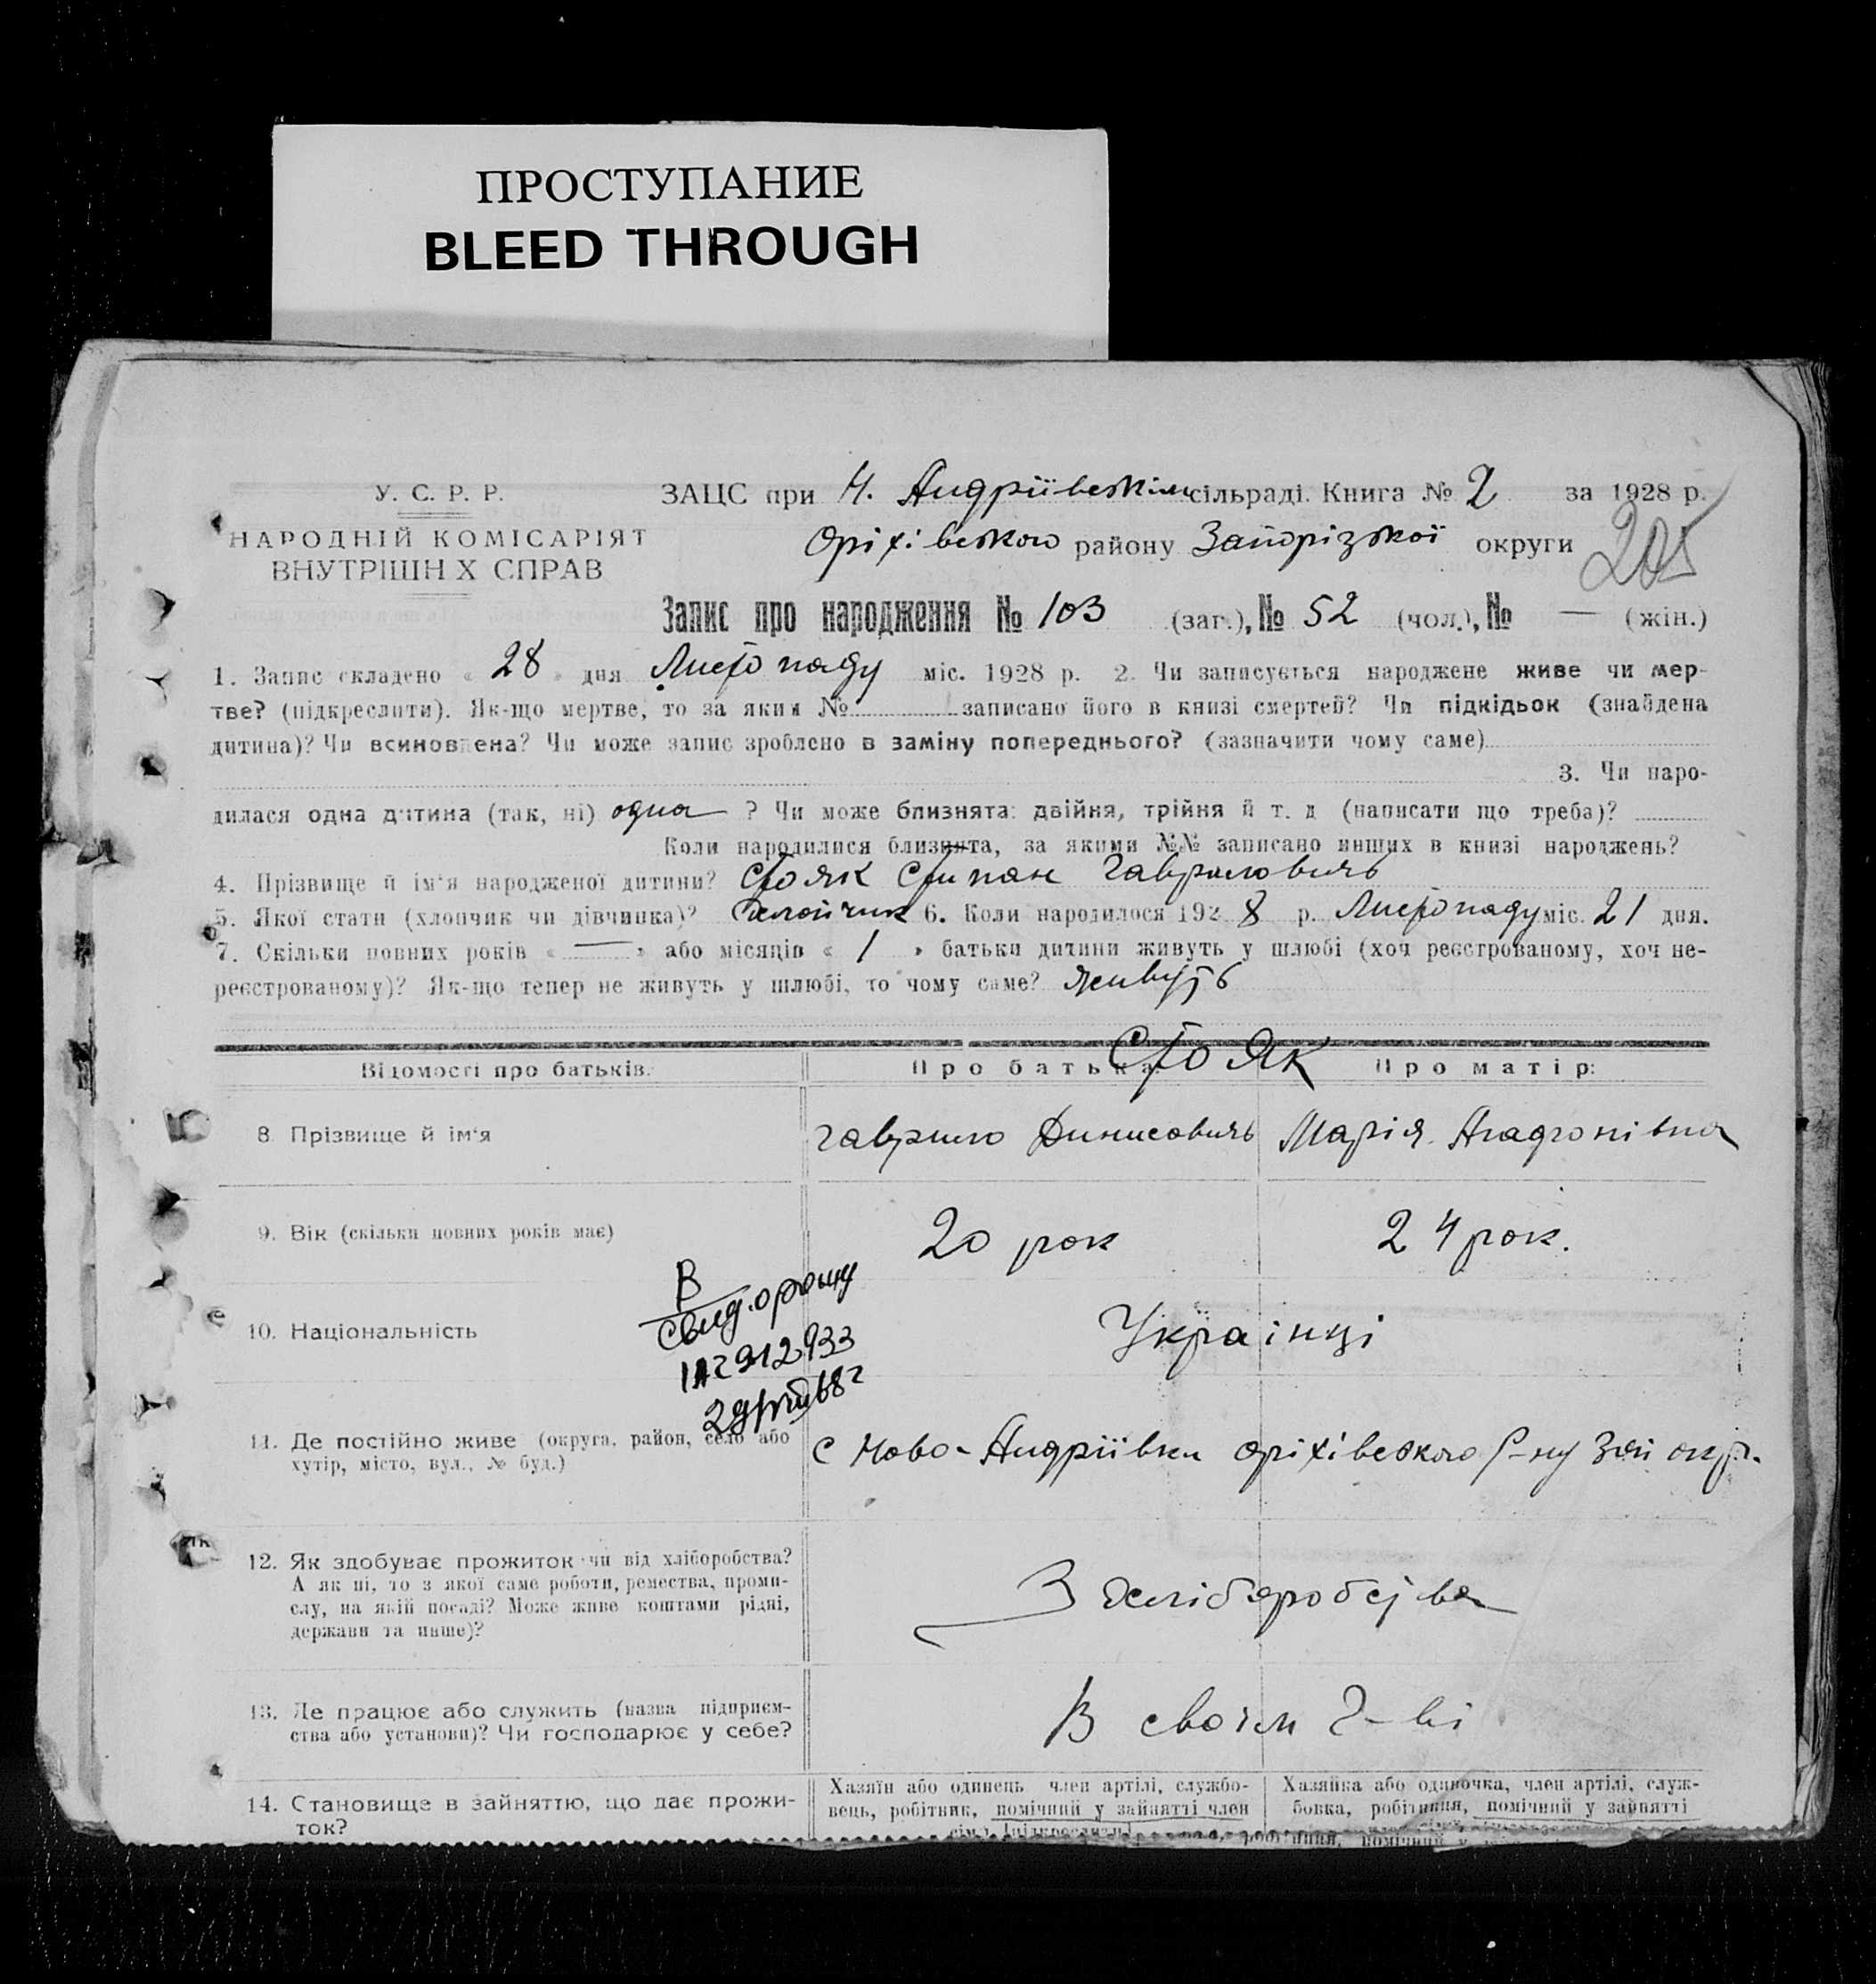 ПРОСТУПАНИЕ
BLEED THROUGH
У. С. Р. Р.
НАРОДНІЙ КОМІСАРІЯТ
ВНУТРІШН Х СПРАВ
ЗАЦС при Н. Андріївськім сільраді. Книга № 2 за 1928 р.
Оріхівського району Запорізької округи
205
Запис про народження № 103 (заг.), № 52 (чол.), № — (жін.)
1. Запис складено « 28 » дня Листопаду міс. 1928 р. 2. Чи записується народжене живе чи мер-
тве? (підкреслити). Як-що мертве, то за яким № записано його в книзі смертей? Чи підкідьок (знайдена
дитина)? Чи всиновлена? Чи може запис зроблено в заміну попереднього? (зазначити чому саме)
3. Чи наро-
дилася одна дитина (так, ні) одна ? Чи може близнята: двійня, трійня й т. д (написати що треба)?
Коли народилися близнята, за якими №№ записано инших в книзі народжень?
4. Прізвище й ім'я народженої дитини? Стояк Стипан Гаврилович
5. Якої стати (хлопчик чи дівчинка)? Хлопчик 6. Коли народилося 192 8 р. Листопаду міс. 21 дня.
7. Скільки повних років « — » або місяців « 1 » батьки дитини живуть у шлюбі (хоч реєстрованому, хоч не-
реєстрованому)? Як-що тепер не живуть у шлюбі, то чому саме? живуть
Відомості про батьків: Про батька: Стояк Про матір:
8. Прізвище й ім'я Гаврило Динисович Марія Агафонівна
9. Вік (скільки повних років має) 20 рок 24 рок.
10. Національність Українці
В
свид. о рожд
ІАГ 912933
11. Де постійно живе (округа, район, село або
хутір, місто, вул., № буд.) с Ново-Андріївки Оріхівського Р-ну Зап окр.
12. Як здобуває прожиток чи від хліборобства?
А як ні, то з якої саме роботи, ремества, проми-
слу, на якій посаді? Може живе коштами рідні,
держави та инше)? З хліборобства
13. Де працює або служить (назва підприєм-
ства або установи)? Чи господарює у себе? В своїм г-ві
14. Становище в зайняттю, що дає прожи-
ток?
Хазяїн або одинець член артілі, службо-
вець, робітник, помічний у зайнятті член
сім'ї (підкреслити)
Хазяйка або одиночка, член артілі, служ-
бовка, робітниця, помічний у зайнятті